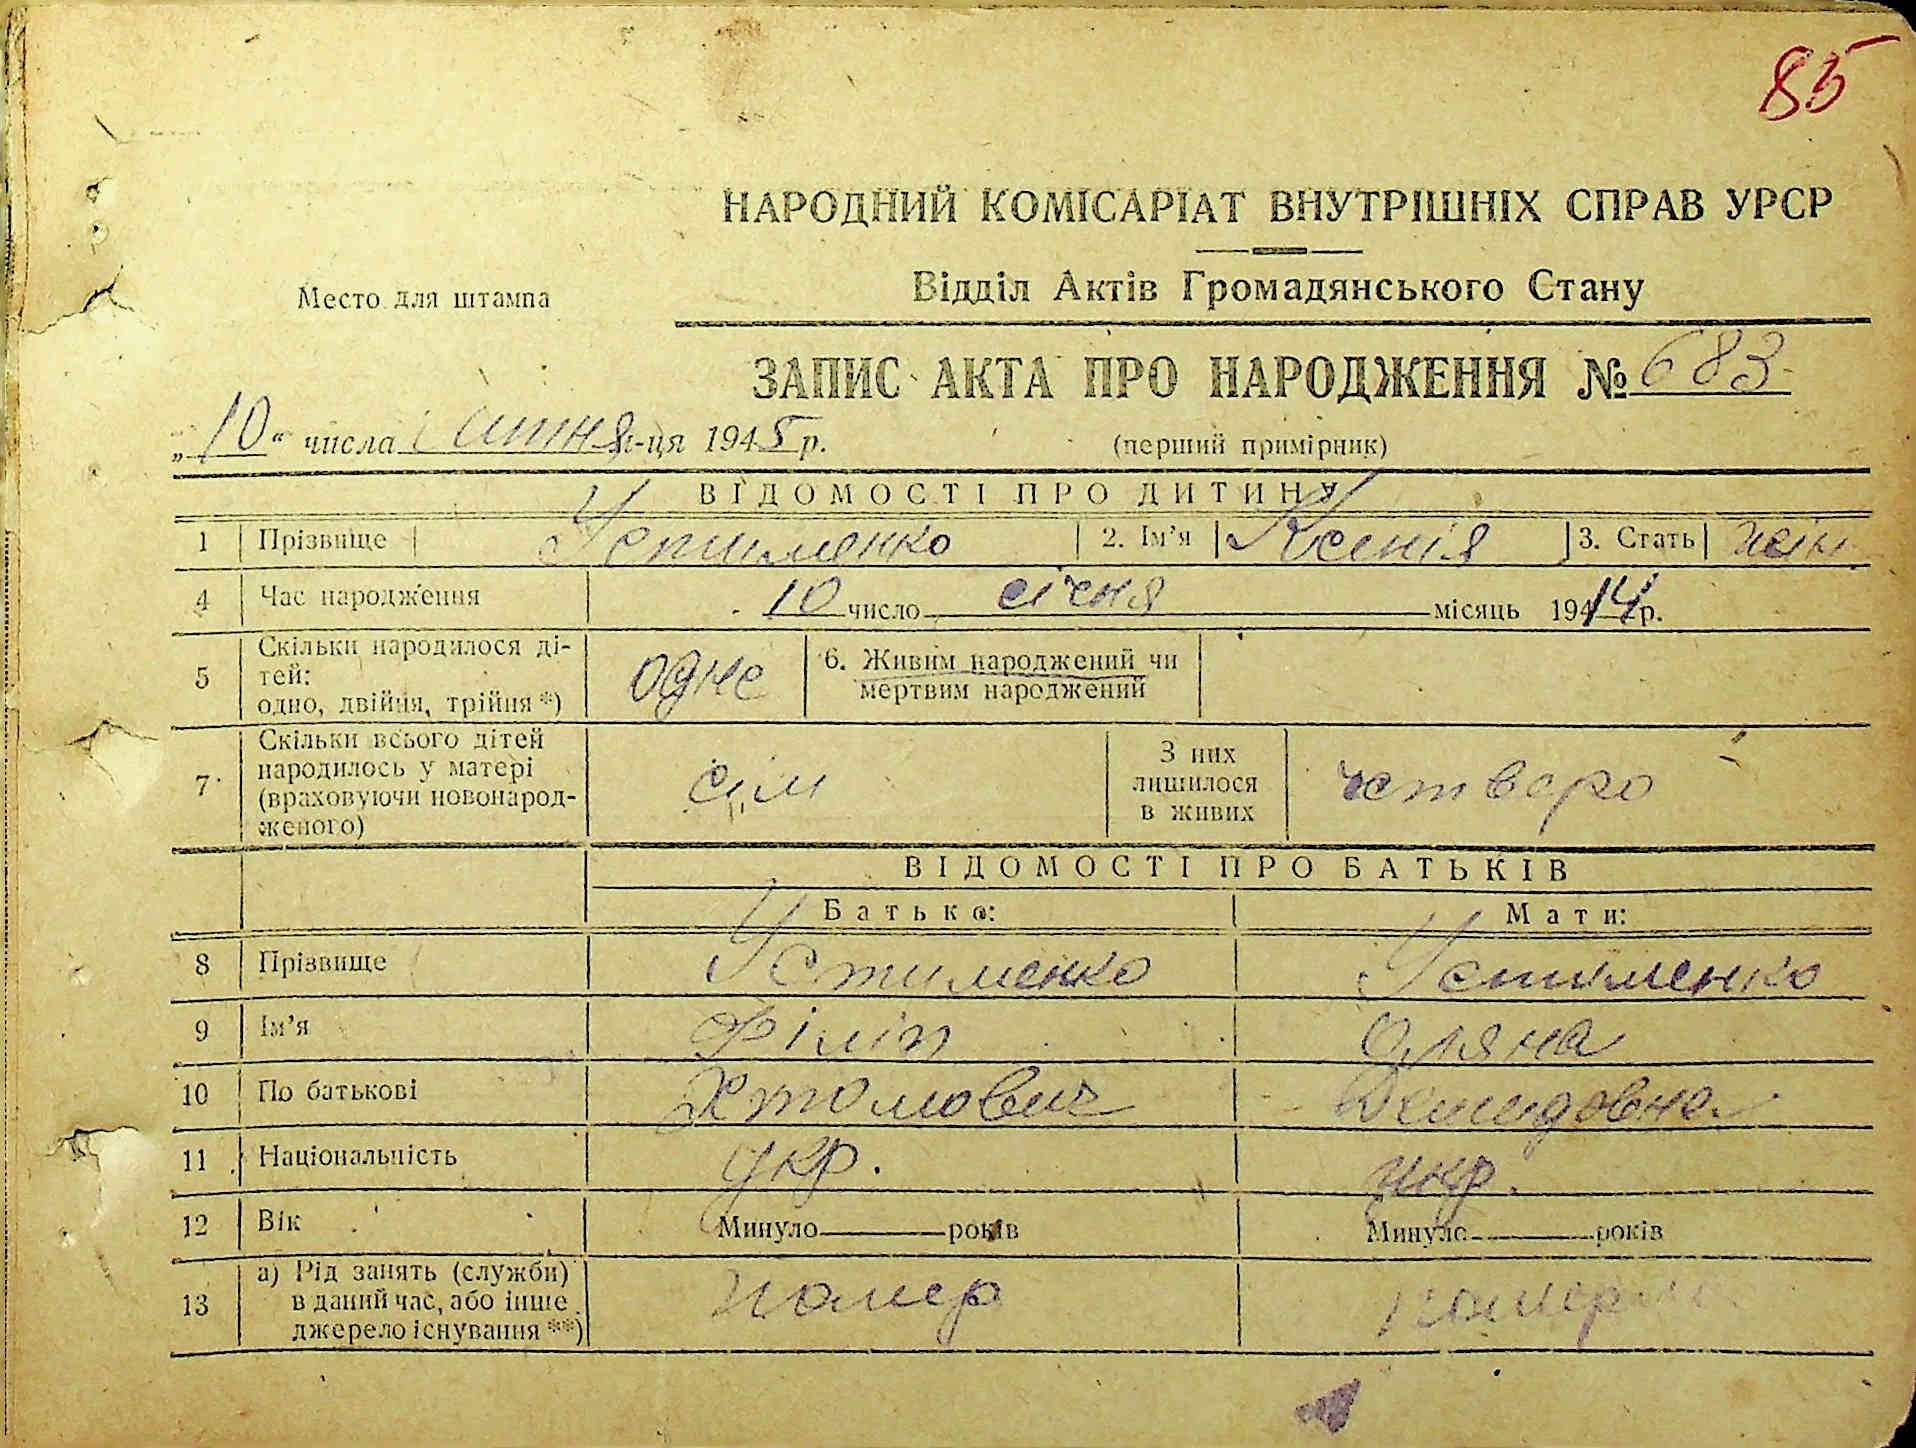 85
НАРОДНИЙ КОМІСАРІАТ ВНУТРІШНІХ СПРАВ УРСР
Відділ Актів Громадянського Стану
Место для штампа
ЗАПИС АКТА ПРО НАРОДЖЕННЯ № 683
„10“ числа м-ця 1945 р. (перший примірник)
ВІДОМОСТІ ПРО ДИТИНУ
1 Прізвище Устименко 2. Ім’я Ксенія 3. Стать жін
4 Час народження 10 число січня місяць 1914 р.
5 Скільки народилося ді-
тей:
одно, двійня, трійня *) одне 6. Живим народжений чи
мертвим народжений
7 Скільки всього дітей
народилось у матері
(враховуючи новонарод-
женого) сім З них
лишилося
в живих четверо
ВІДОМОСТІ ПРО БАТЬКІВ
Батько: Мати:
8 Прізвище Устименко Устименко
9 Ім’я Філіп Оляна
10 По батькові Хтомович Демидовна
11 Національність укр. укр.
12 Вік Минуло років Минуло років
13 а) Рід занять (служби)
в даний час, або інше
джерело існування **) помер померла